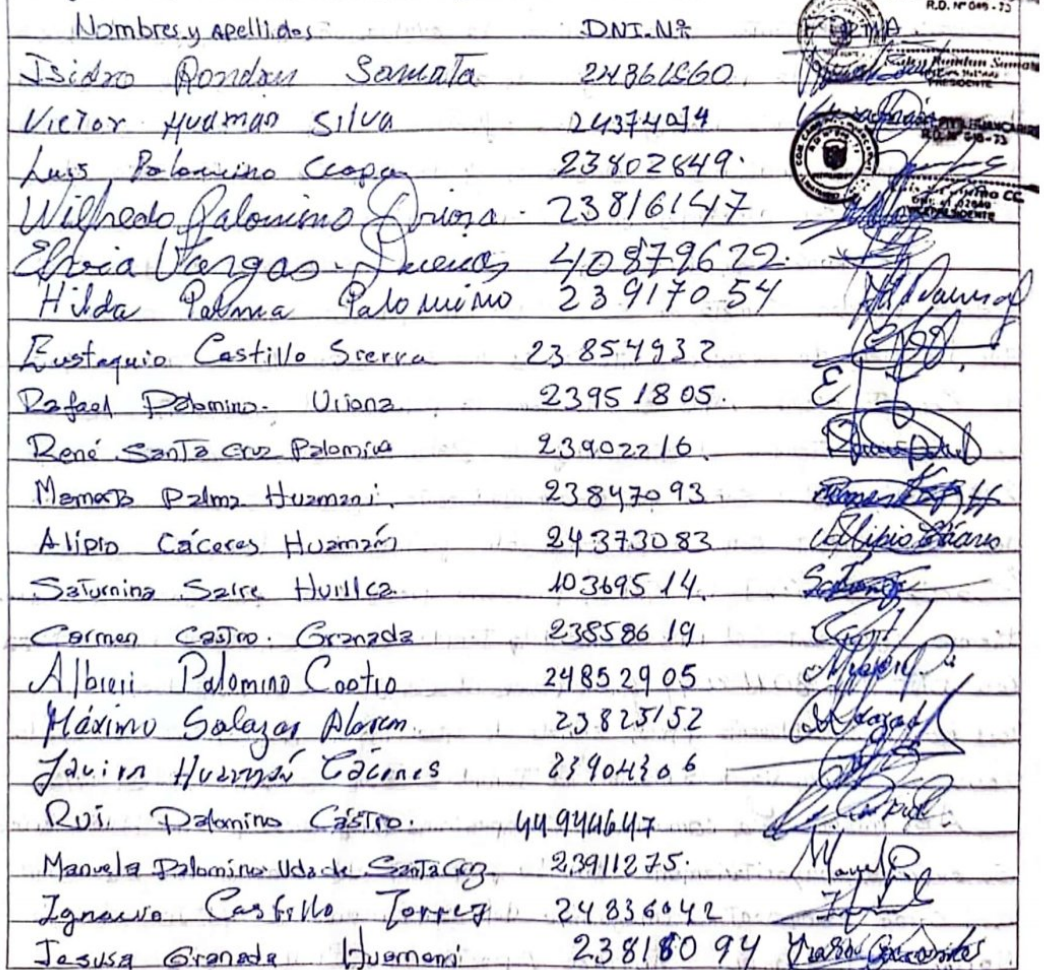 R.D. Nº 049 - 73
Nombres y Apellidos DNI.Nº FIRMA
Isidro Rondan Samata 24861560
PRESIDENTE
Victor Huaman Silva 24374014
R.D. Nº 049-73
Luis Palomino Ccopa 23802849.
Wilfredo Palomino 23816147
VICEPRESIDENTE
Vargas 40879622.
Hilda Palma Palomino 23917054
Eustaquio Castillo Sierra 23854932
Rafael Palomino. Uriona 23951805.
René Santa Cruz Palomino 23902216.
Palma Huamani. 23847093
Alipio Cáceres Huamán 24373083
Saturnina Saire Huillca 40369514.
Carmen Castro. Granada 23858619
Palomino Castro 24852905
Máximo Salazar 23825152
Huamán Cáceres
Rui. Palomino Cástro. 44944647
Manuela Palomino Vda de Santa Cruz 23911275.
Ignacio Castillo Torrez 24836042
Jesusa Granada Huamani 23818094